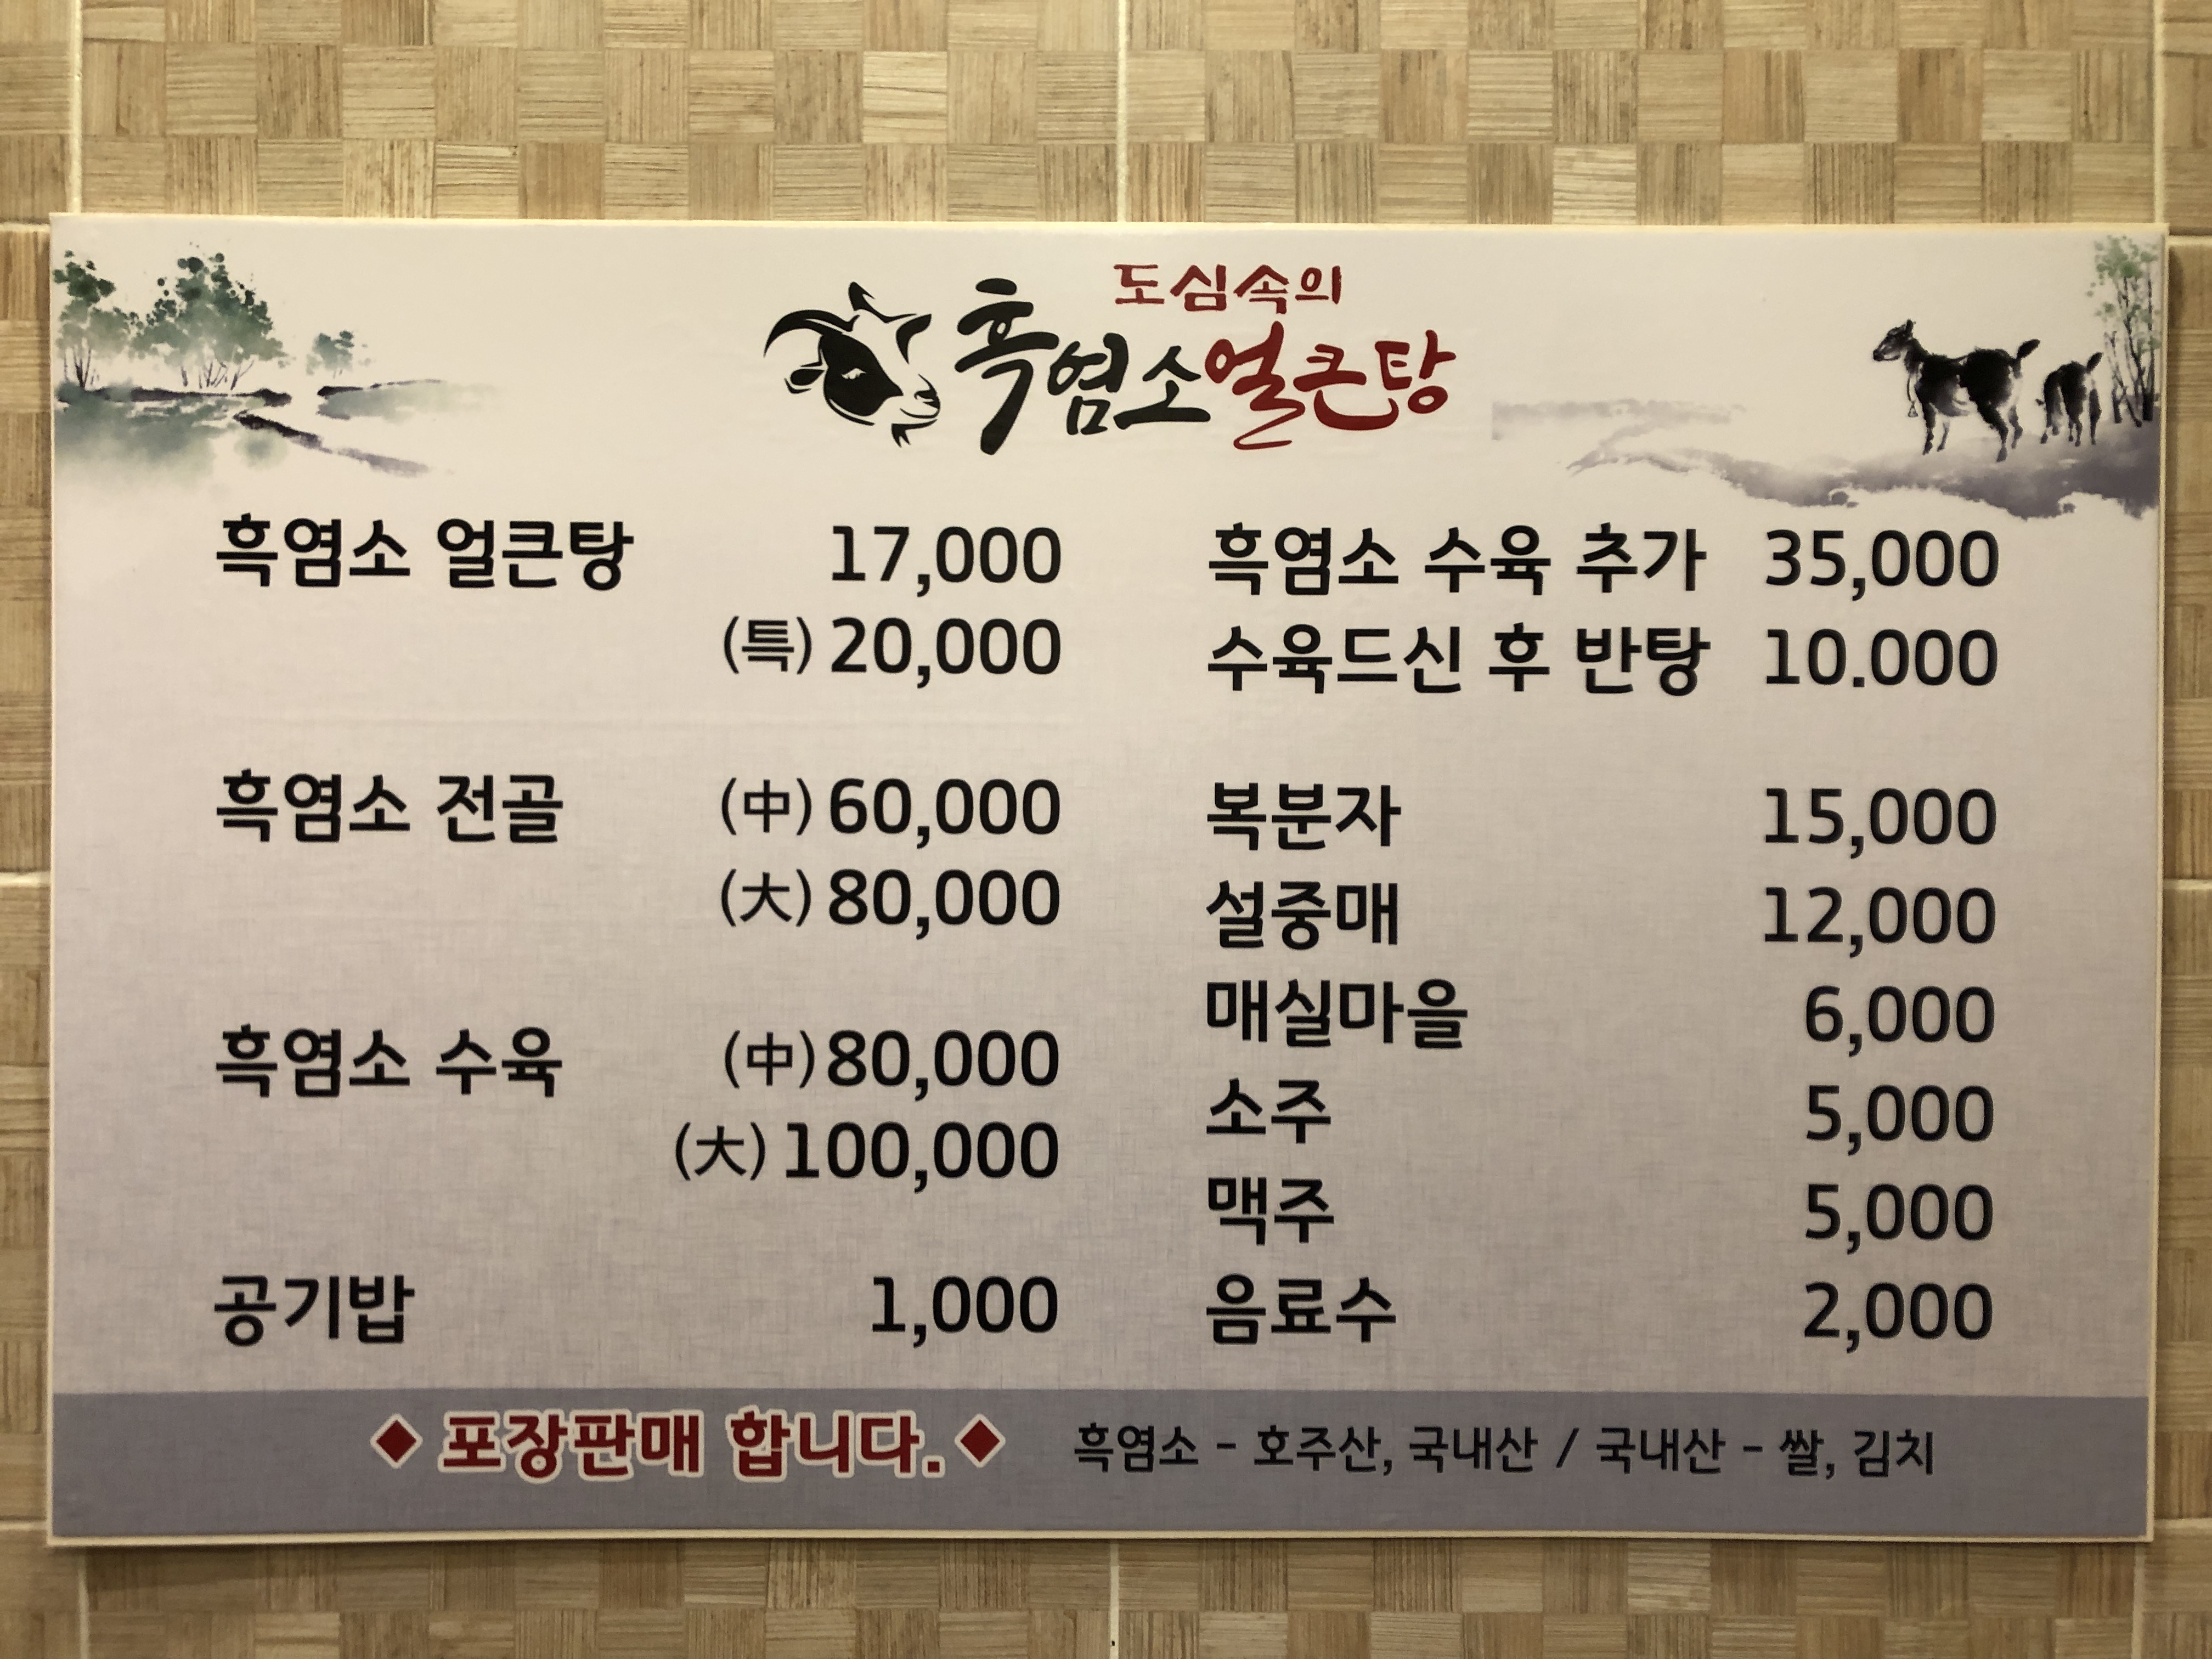 도심속의
흑염소얼큰탕
흑염소 얼큰탕 17,000
(특) 20,000
흑염소 전골 (中) 60,000
(大) 80,000
흑염소 수육 (中) 80,000
(大) 100,000
공기밥 1,000
흑염소 수육 추가 35,000
수육드신 후 반탕 10.000
복분자 15,000
설중매 12,000
매실마을 6,000
소주 5,000
맥주 5,000
음료수 2,000
◆ 포장판매 합니다. ◆
흑염소 - 호주산, 국내산 / 국내산 - 쌀, 김치